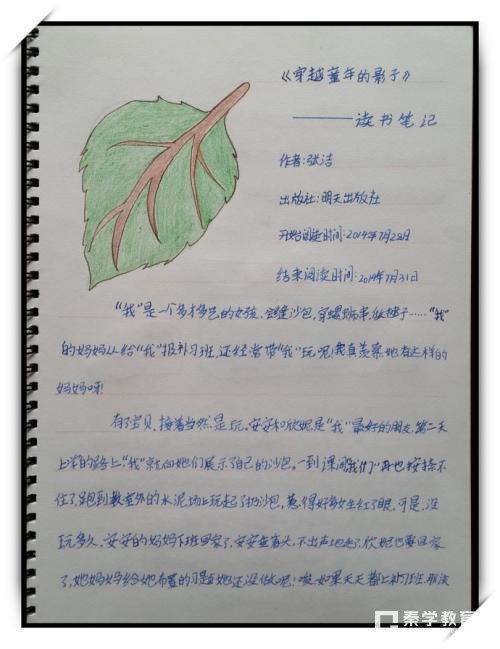 《穿越童年的影子》
——读书笔记
作者:张洁
出版社:明天出版社
开始阅读时间:2014年7月28日
结束阅读时间:2014年7月31日
"我"是一个多才多艺的女孩,会缝沙包,穿螺蛳串,做毽子……"我"
的妈妈从给"我"报补习班,还经常带"我"玩呢!我真羡慕她有这样的
妈妈呀!
有了宝贝,接着当然是玩,安安和欣妮是"我"最好的朋友,第二天
上学的路上"我"就向她们展示了自己的沙包,一到课间"我们"再也按捺不
住了,跑到教室外的水泥场上玩起了扔沙包,惹得好多女生红了眼,可是,没
玩多久,安安的妈妈下班回家了,安安垂着头,不出声地走了,欣妮也要回家
了,她妈妈给她布置的习题她还没做呢!唉,如果天天都上补习班,那该
秦学教育